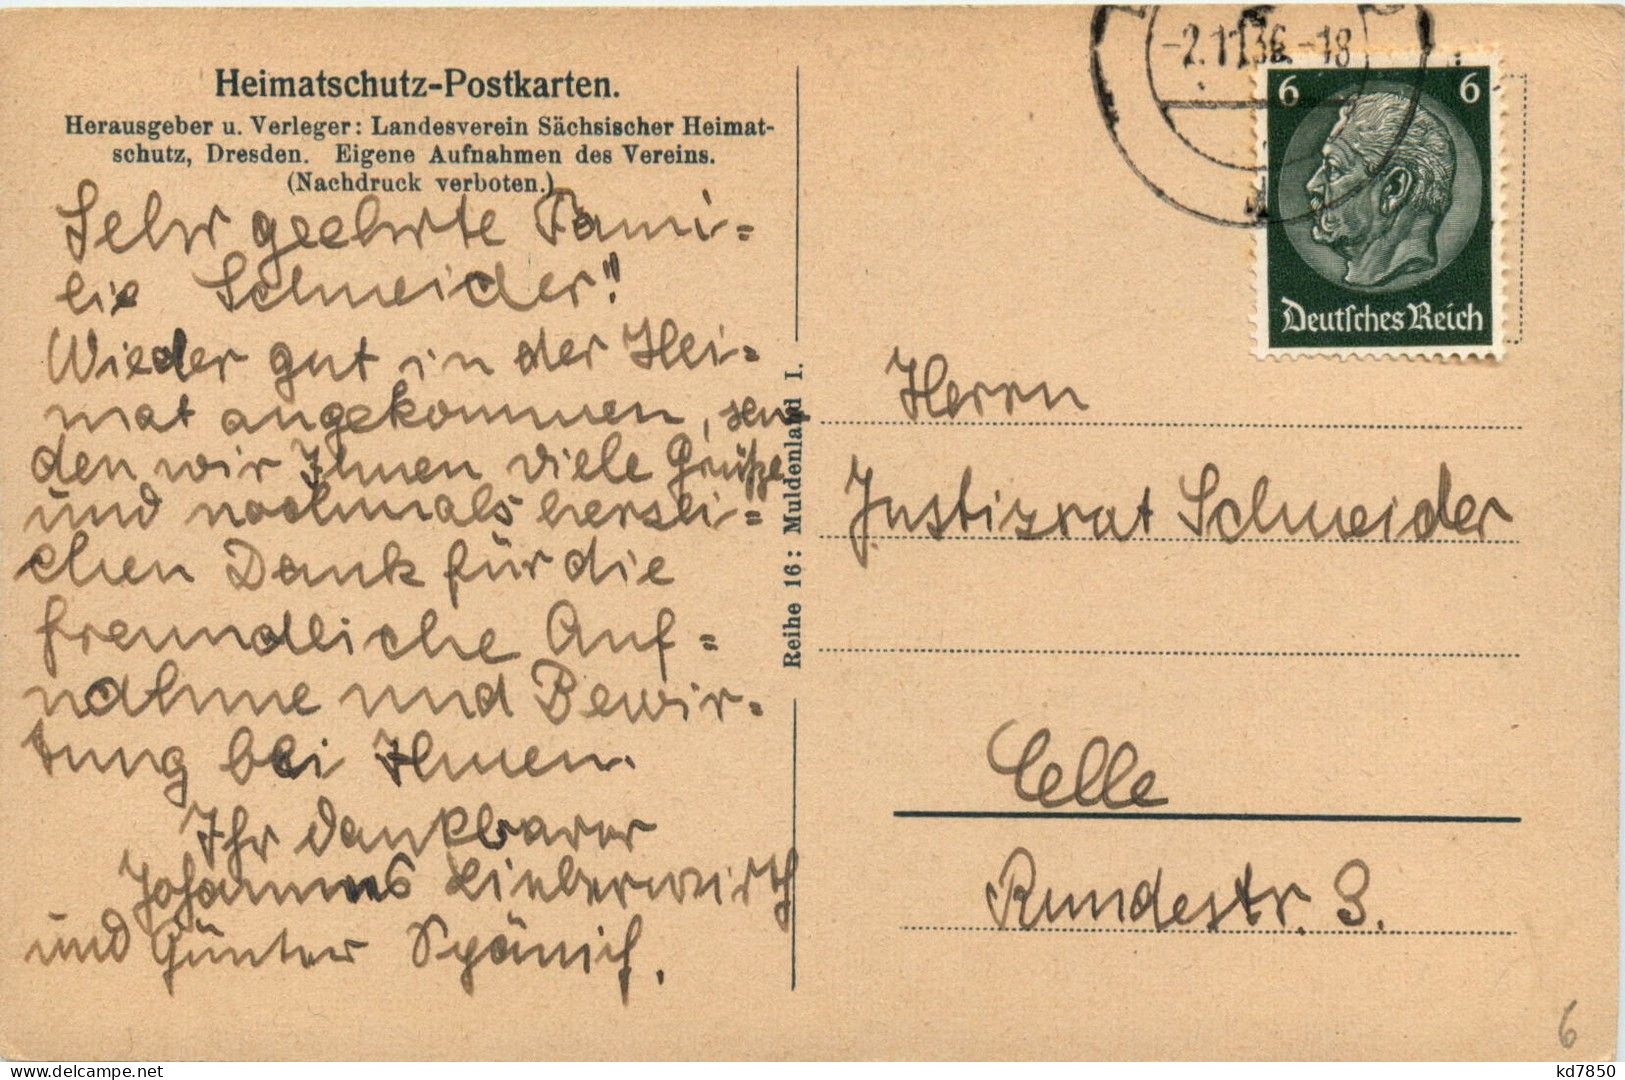 Heimatschutz-Postkarten.
Herausgeber u. Verleger: Landesverein Sächsischer Heimat-
schutz, Dresden. Eigene Aufnahmen des Vereins.
(Nachdruck verboten.)
Sehr geehrte Fami=
lie Schneider!
Wieder gut in der Hei=
mat angekommen, sen
den wir Ihnen viele Grüße
und nochmals herzli=
chen Dank für die
freundliche Auf=
nahme und Bewir=
tung bei Ihnen.
Ihr dankbarer
Johannes Lieberwirth
und Günter Spänich.
Reihe 16: Muldenland I.
-2.11.36.-18
6 6
Deutsches Reich
Herrn
Justizrat Schneider
Celle
Rundestr. 3.
6
kd7850